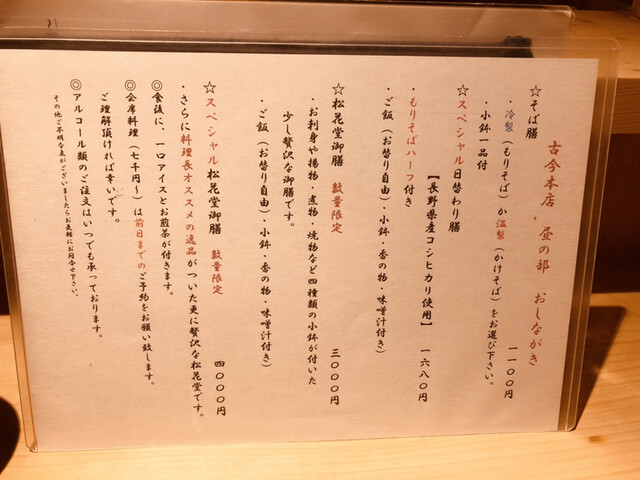 古今本店 昼の部 おしながき
☆そば膳 一一〇〇円
・冷製(もりそば)か温製(かけそば)をお選び下さい。
・小鉢一品付
☆スペシャル日替わり膳 一六八〇円
【長野県産コシヒカリ使用】
・もりそばハーフ付き
・ご飯(お替り自由)・小鉢・香の物・味噌汁付き)
☆松花堂御膳 数量限定 三〇〇〇円
・お刺身や揚物・煮物・焼物など四種類の小鉢が付いた
少し贅沢な御膳です。
・ご飯(お替り自由)・小鉢・香の物・味噌汁付き)
☆スペシャル松花堂御膳 数量限定 四〇〇〇円
・さらに料理長オススメの逸品がついた更に贅沢な松花堂です。
◎食後に、一口アイスとお煎茶が付きます。
◎会席料理(七千円〜)は前日までのご予約をお願い致します。
ご理解頂ければ幸いです。
◎アルコール類のご注文はいつでも承っております。
その他ご不明な点がございましたらお気軽にお問合せ下さい。